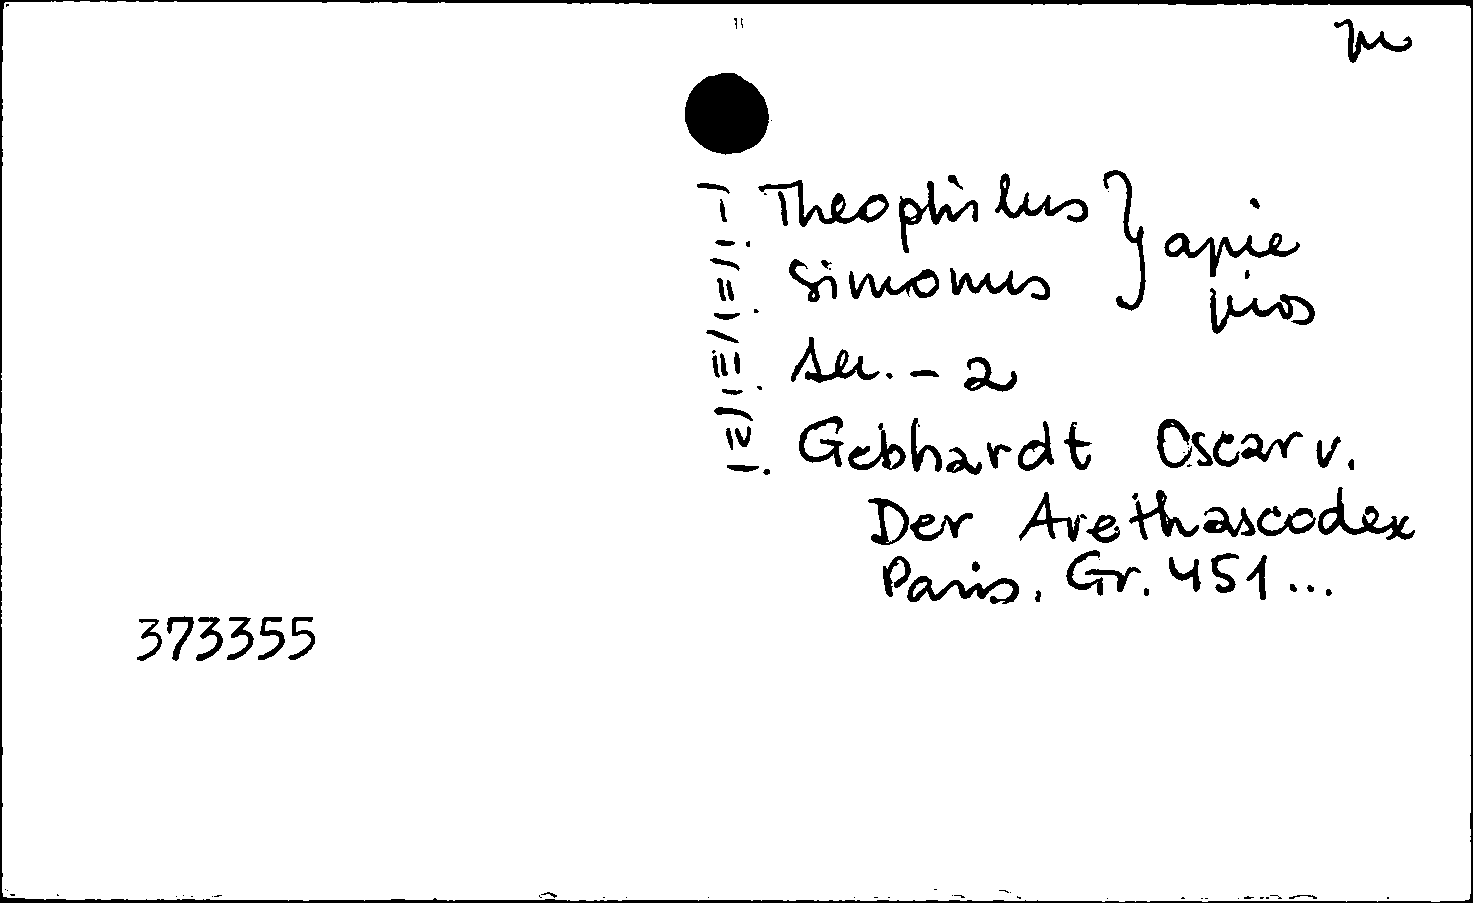 m
Theophilus } apie
Simonus } juos
ser. - 2
Gebhardt Oscar v.
Der Arethascodex
Paris. Gr. 451...
373355